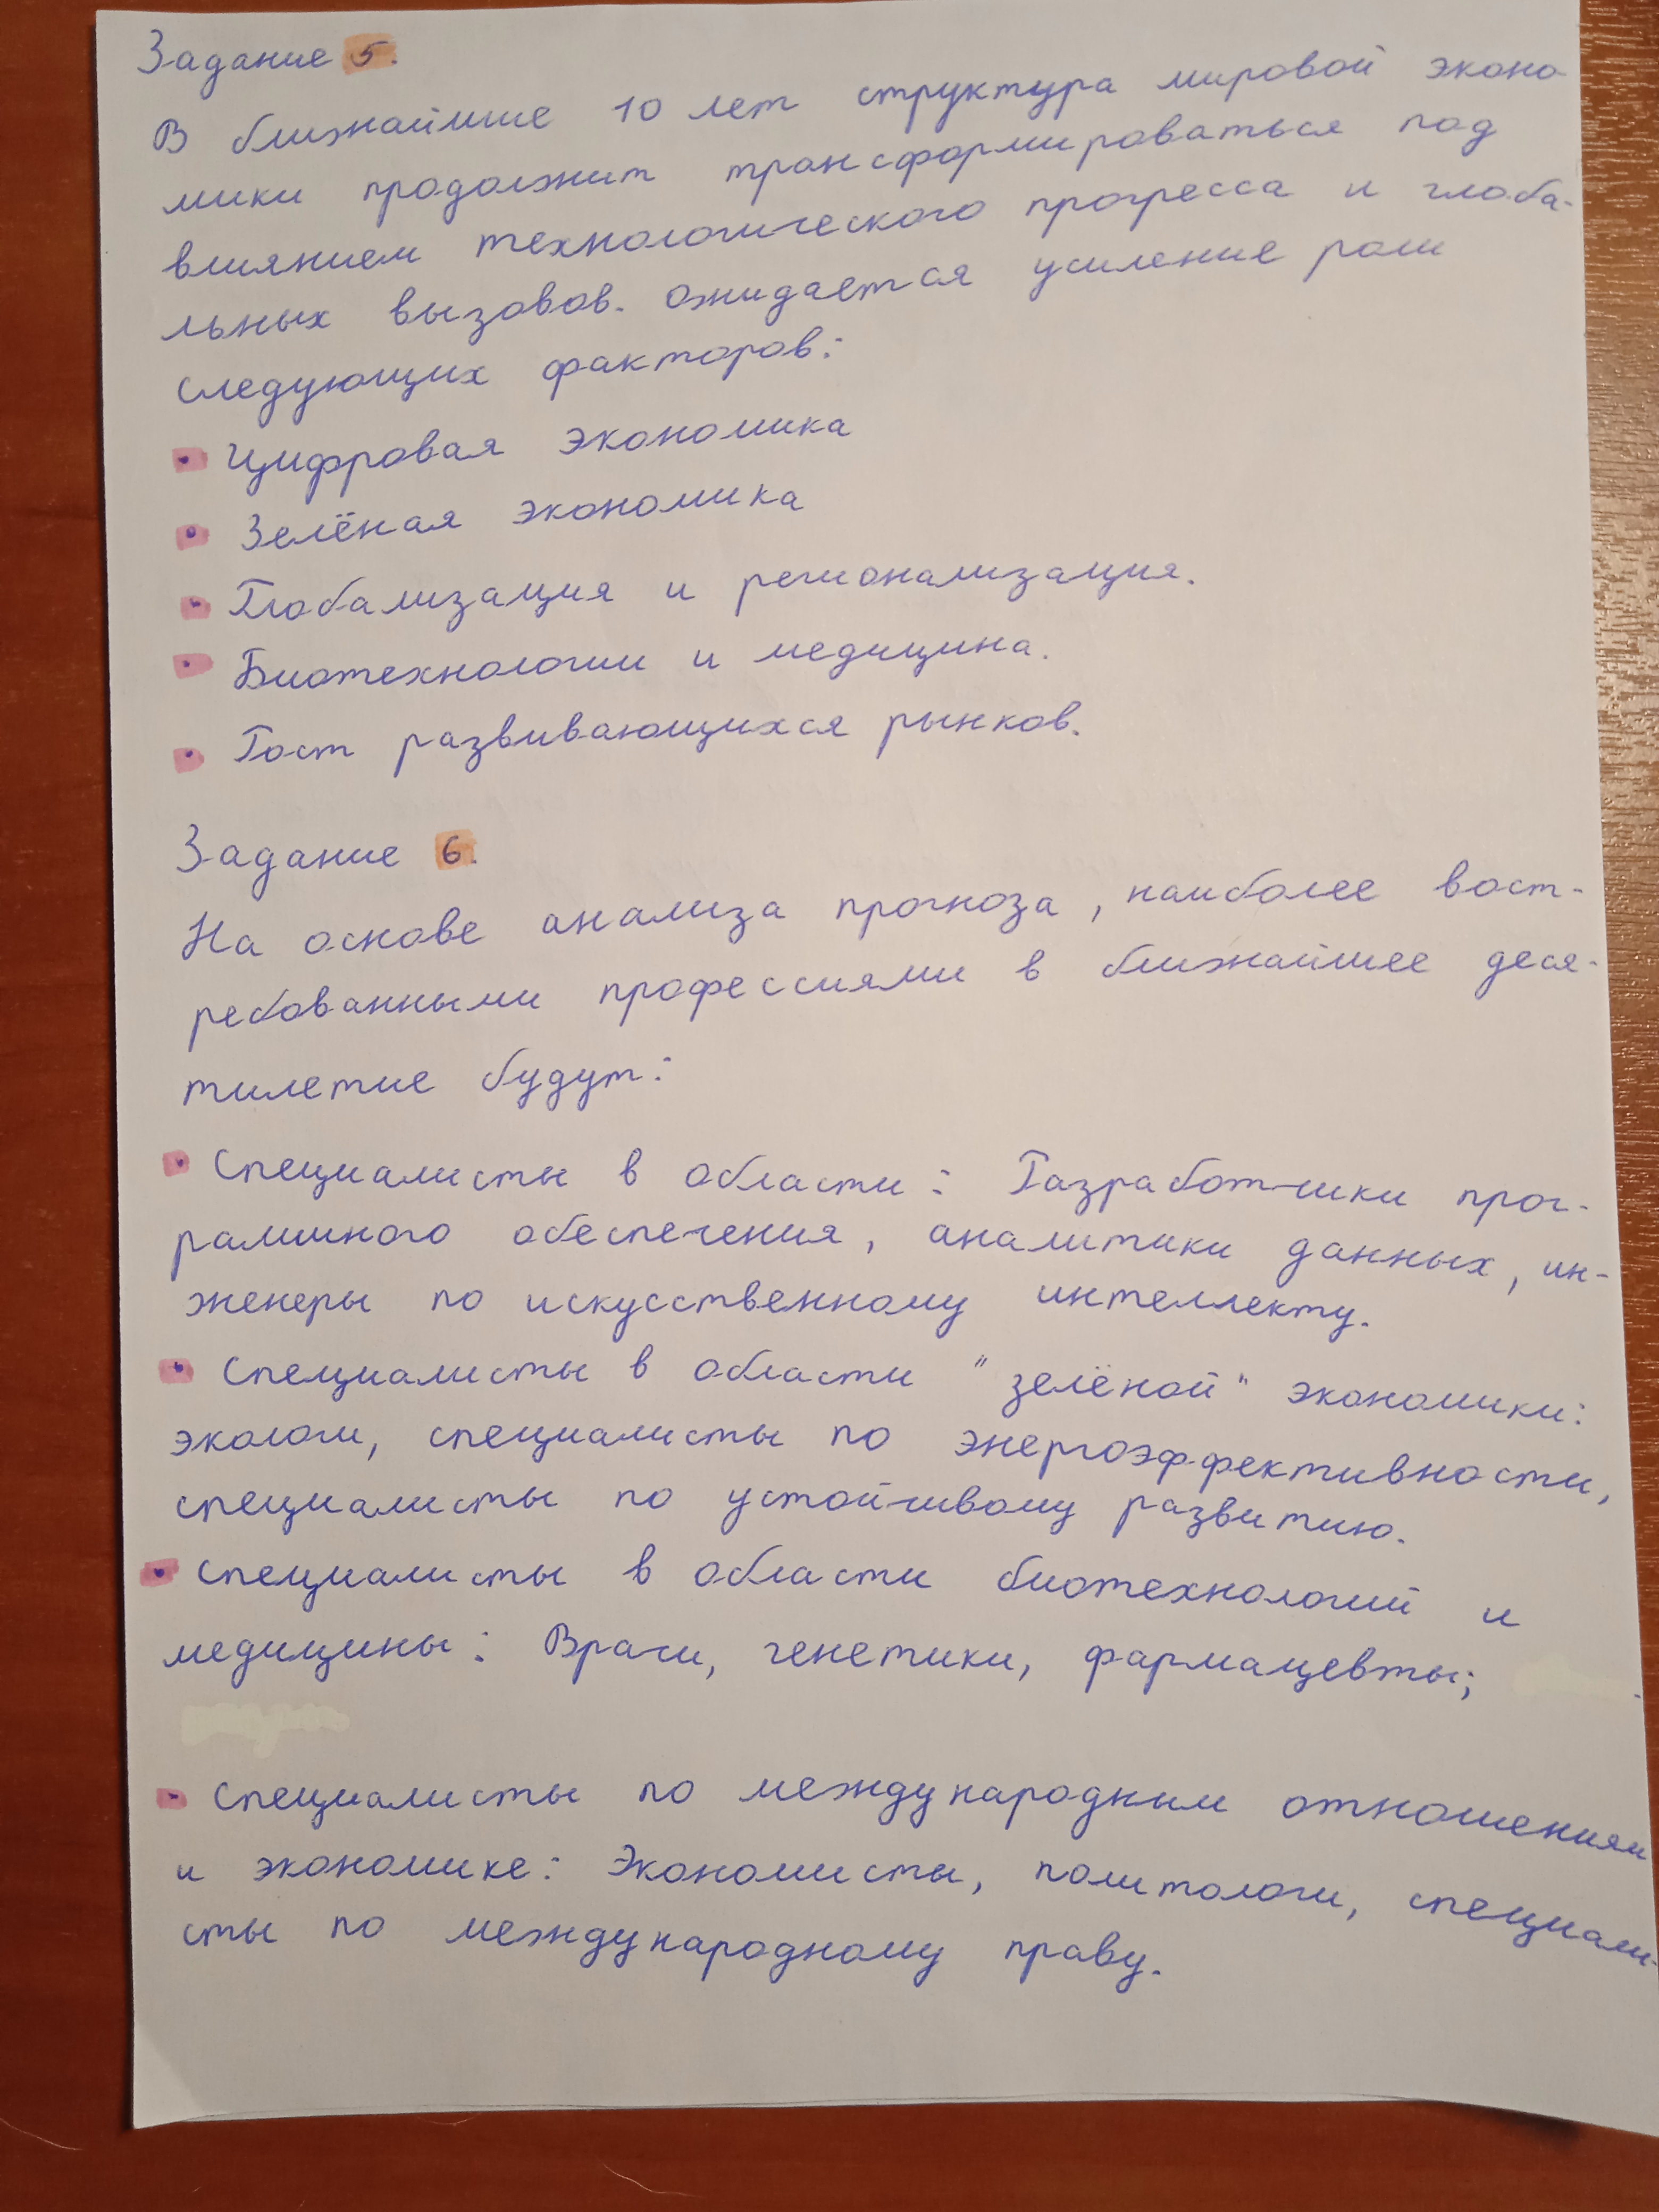 Задание 5.
В ближайшие 10 лет структура мировой эконо-
мики продолжит трансформироваться под
влиянием технологического прогресса и глоба-
льных вызовов. Ожидается усиление роли
следующих факторов:
• Цифровая экономика
• Зелёная экономика
• Глобализация и регионализация.
• Биотехнологии и медицина.
• Рост развивающихся рынков.
Задание 6.
На основе анализа прогноза, наиболее вост-
ребованными профессиями в ближайшее деся-
тилетие будут:
• Специалисты в области: Разработчики прог-
раммного обеспечения, аналитики данных, ин-
женеры по искусственному интеллекту.
• Специалисты в области "зелёной" экономики:
экологи, специалисты по энергоэффективности,
специалисты по устойчивому развитию.
• Специалисты в области биотехнологий и
медицины: Врачи, генетики, фармацевты;
• Специалисты по международным отношениям
и экономике: Экономисты, политологи, специали-
сты по международному праву.